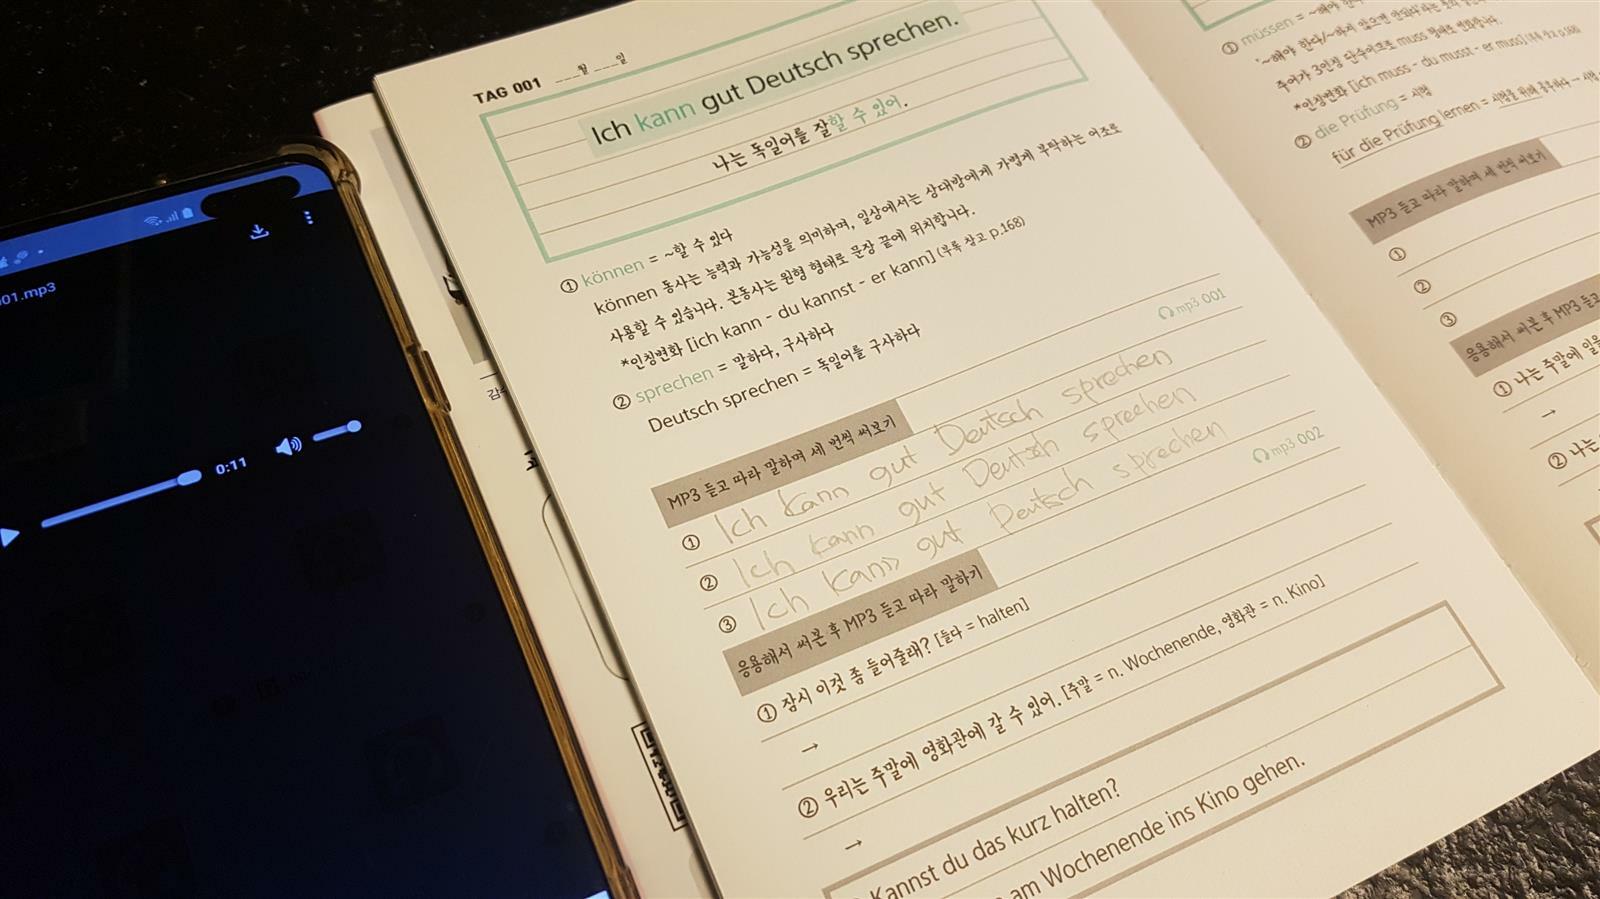 01.mp3
0:11
TAG 001 ___월 ___일
Ich kann gut Deutsch sprechen.
나는 독일어를 잘할 수 있어.
① können = ~할 수 있다
können 동사는 능력과 가능성을 의미하며, 일상에서는 상대방에게 가볍게 부탁하는 어조로
사용할 수 있습니다. 본동사는 원형 형태로 문장 끝에 위치합니다.
*인칭변화 [ich kann - du kannst - er kann] (부록 참고 p.168)
② sprechen = 말하다, 구사하다
Deutsch sprechen = 독일어를 구사하다
mp3 001
MP3 듣고 따라 말하며 세 번씩 써보기
① Ich kann gut Deutsch sprechen
② Ich kann gut Deutsch sprechen
③ Ich kann gut Deutsch sprechen
mp3 002
응용해서 써본 후 MP3 듣고 따라 말하기
① 잠시 이것 좀 들어줄래? [들다 = halten]
→
② 우리는 주말에 영화관에 갈 수 있어. [주말 = n. Wochenende, 영화관 = n. Kino]
→
Kannst du das kurz halten?
am Wochenende ins Kino gehen.
① müssen = ~해야
'~해야 한다/~하지 않으면 안된다'라는
주어가 3인칭 단수이므로 muss 형태로 변화합니다.
*인칭변화 [ich muss - du musst - er muss] (부록 참고 p.168)
② die Prüfung = 시험
für die Prüfung lernen = 시험을 위해 공부하다 → 시험
MP3 듣고 따라 말하며 세 번씩 써보기
①
②
③
응용해서 써본 후 MP3 듣고
① 나는 주말에 일을
→
② 나는